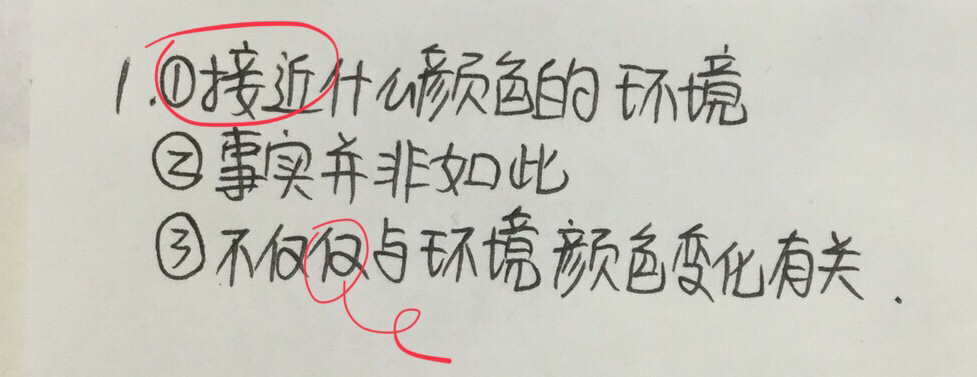 1.①接近什么颜色的环境
②事实并非如此
③不仅仅与环境颜色变化有关.